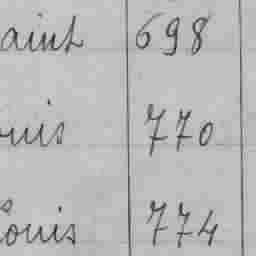 aint 698
ouis 770
Louis 774